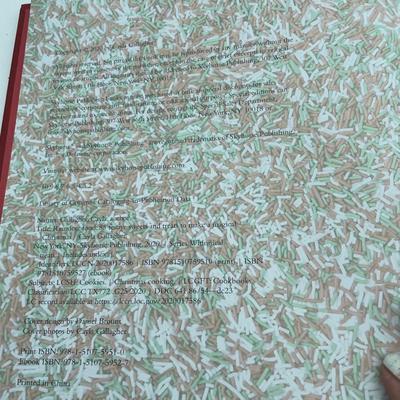 Copyright © 2020 by Carla Gallagher
All rights reserved. No part of this book may be reproduced in any manner without the
express written consent of the publisher, except in the case of brief excerpts in critical
reviews or articles. All inquiries should be addressed to Skyhorse Publishing, 307 West
36th Street, 11th Floor, New York, NY 10018.
Skyhorse Publishing books may be purchased in bulk at special discounts for sales
promotion, corporate gifts, fund-raising, or educational purposes. Special editions can
also be created to specifications. For details, contact the Special Sales Department,
Skyhorse Publishing, 307 West 36th Street, 11th Floor, New York, NY 10018 or
Skyhorse® and Skyhorse Publishing® are registered trademarks of Skyhorse Publishing,
Inc.®, a Delaware corporation.
Visit our website at www.skyhorsepublishing.com.
Library of Congress Cataloging-in-Publication Data
Names: Gallagher, Carla, author.
Title: food: 85 festive sweets and treats to make a magical
Christmas / Carla Gallagher.
New York, NY: Skyhorse Publishing, 2020. | Series: Whimsical
treats | Includes index.
Identifiers: LCCN 2020017586 | ISBN 9781510759510 (print) | ISBN
9781510759527 (ebook)
Subjects: LCSH: Cookies. | Christmas cooking. | LCGFT: Cookbooks.
Classification: LCC TX772 .G25 2020 | DDC 641.86/54—dc23
LC record available at https://lccn.loc.gov/2020017586
Cover design by Daniel Brount
Cover photos by Carla Gallagher
Print ISBN: 978-1-5107-5951-0
Ebook ISBN: 978-1-5107-5952-7
Printed in China